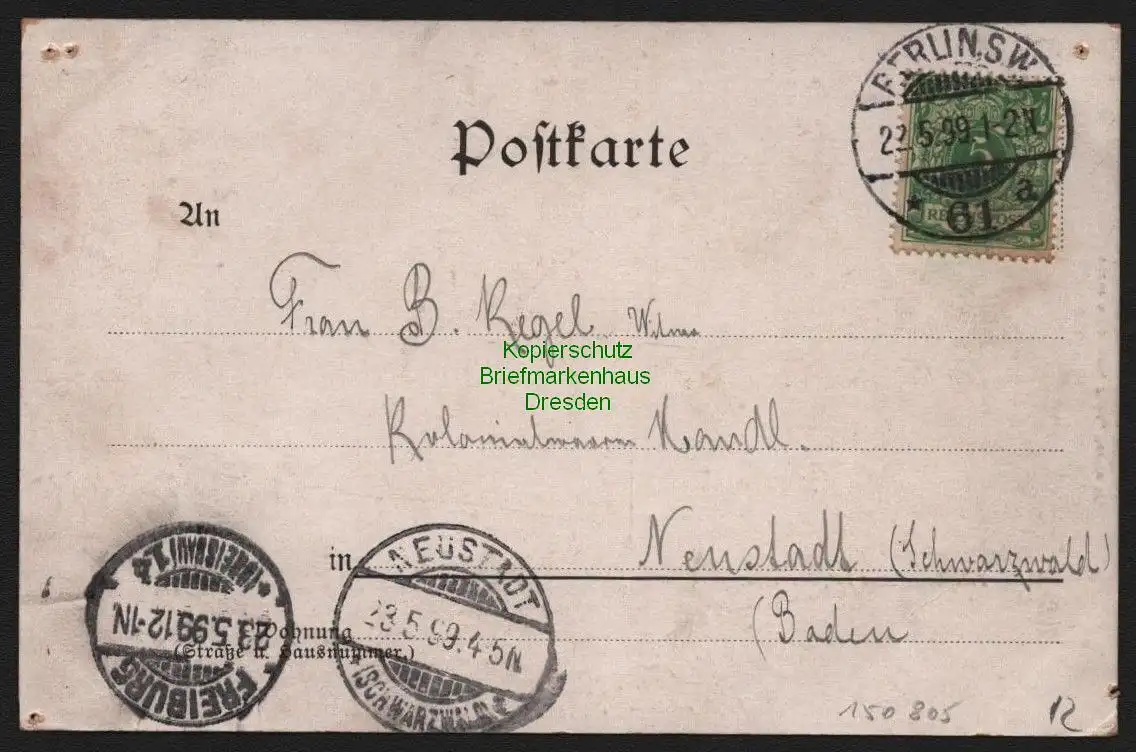 BERLIN.S.W.
22.5.99.1-2N.
* 61 a
5
REICHSPOST
Postkarte
An
Frau B. Kegel Witwe
Kopierschutz
Briefmarkenhaus
Dresden
Kolonialwaren Handl.
in Neustadt (Schwarzwald)
(Baden
Wohnung
(Straße u. Hausnummer.)
FREIBURG
23.5.99.12-1N.
(BREISGAU)
NEUSTADT
23.5.99.4-5N
(SCHWARZWALD)
150805
12